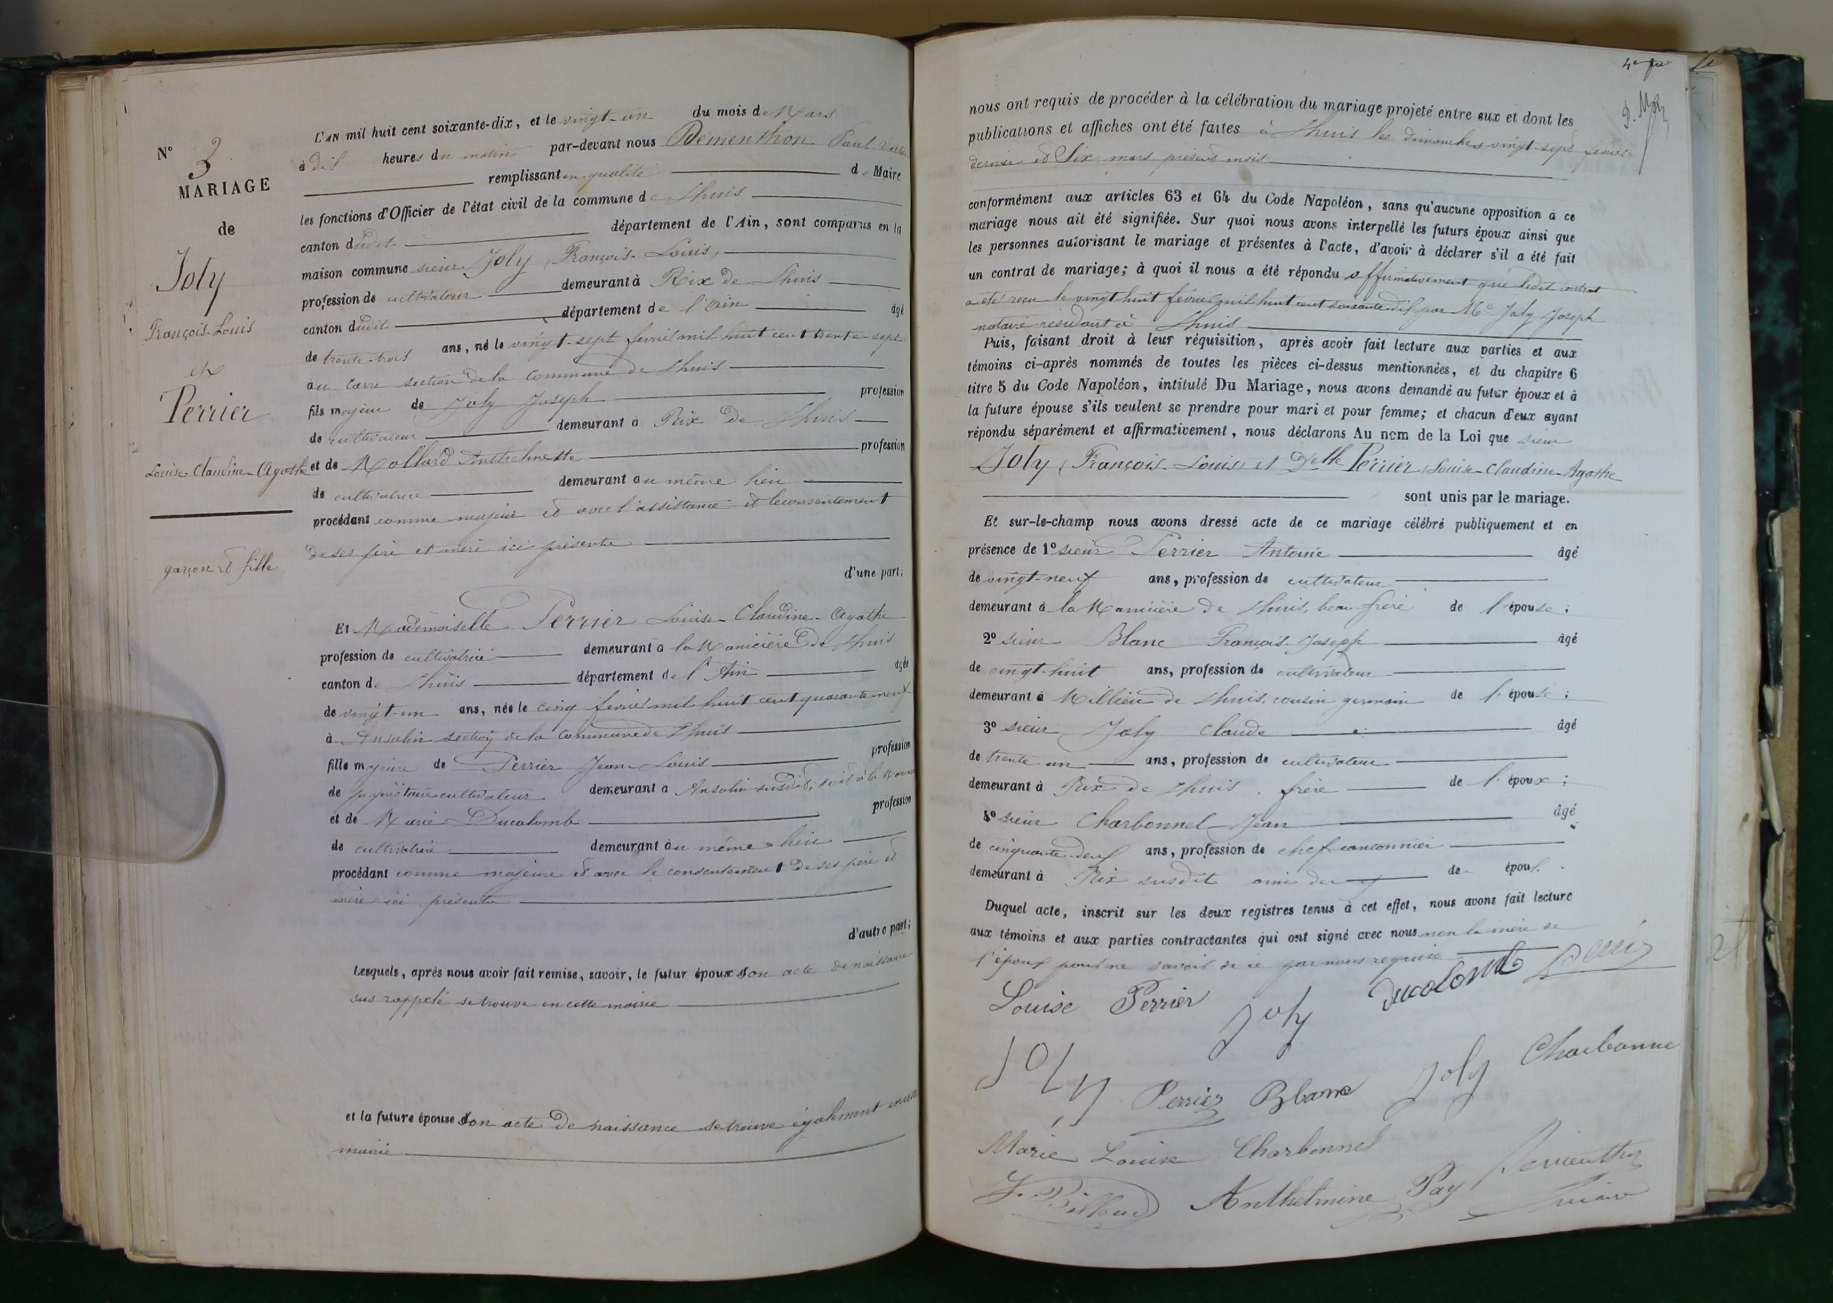 N° 3
MARIAGE
de
Joly
François-Louis
et
Perrier
Louise-Claudine-Agathe
garçon et fille
L'AN mil huit cent soixante-dix, et le vingt-un du mois de Mars
à dix heures du matin par-devant nous Dementhon Paul
remplissant en qualité de Maire
les fonctions d'Officier de l'état civil de la commune de Lhuis
canton dudit département de l'Ain, sont comparus en la
maison commune sieur Joly, François-Louis,
profession de cultivateur demeurant à Rix de Lhuis
canton dudit département de l'Ain âgé
de trente-trois ans, né le vingt-sept février mil huit cent trente-sept
au section de la commune de Lhuis
fils majeur de Joly Joseph profession
de cultivateur demeurant à Rix de Lhuis
et de Mollard Anthelmette profession
de cultivatrice demeurant au même lieu
procédant comme majeur et avec l'assistance et le consentement
de ses père et mère ici présents
d'une part.
Et Mademoiselle Perrier Louise-Claudine-Agathe
profession de cultivatrice demeurant à la de Lhuis
canton de Lhuis département de l'Ain âgée
de vingt-un ans, née le cinq février mil huit cent quarante-neuf
à Ansolin section de la commune de Lhuis
fille majeure de Perrier Jean-Louis profession
de propriétaire cultivateur demeurant à Ansolin susdit,
et de Marie Ducolomb profession
de cultivatrice demeurant au même lieu
procédant comme majeure et avec le consentement de ses père et
mère ici présents
d'autre part;
Lesquels, après nous avoir fait remise, savoir, le futur époux son acte de naissance
sus rappelé se trouve en cette mairie
et la future épouse son acte de naissance se trouve également en cette
mairie
nous ont requis de procéder à la célébration du mariage projeté entre eux et dont les
publications et affiches ont été faites à Lhuis les dimanches vingt-sept février
dernier et Six mars présent mois
conformément aux articles 63 et 64 du Code Napoléon, sans qu'aucune opposition à ce
mariage nous ait été signifiée. Sur quoi nous avons interpellé les futurs époux ainsi que
les personnes autorisant le mariage et présentes à l'acte, d'avoir à déclarer s'il a été fait
un contrat de mariage; à quoi il nous a été répondu affirmativement que ledit contrat
a été reçu le vingt huit février mil huit cent soixante dix par Me Joly Joseph
notaire résidant à Lhuis
Puis, faisant droit à leur réquisition, après avoir fait lecture aux parties et aux
témoins ci-après nommés de toutes les pièces ci-dessus mentionnées, et du chapitre 6
titre 5 du Code Napoléon, intitulé Du Mariage, nous avons demandé au futur époux et à
la future épouse s'ils veulent se prendre pour mari et pour femme; et chacun d'eux ayant
répondu séparément et affirmativement, nous déclarons Au nom de la Loi que sieur
Joly, François-Louis et Delle Perrier Louise-Claudine-Agathe
sont unis par le mariage.
Et sur-le-champ nous avons dressé acte de ce mariage célébré publiquement et en
présence de 1° sieur Perrier Antoine âgé
de vingt-neuf ans, profession de cultivateur
demeurant à la de Lhuis, beau-frère de l'épouse;
2° sieur Blanc François-Joseph âgé
de vingt-huit ans, profession de cultivateur
demeurant à Millieu de Lhuis, cousin germain de l'épouse;
3° sieur Joly Claude âgé
de trente un ans, profession de cultivateur
demeurant à Rix de Lhuis, frère de l'époux;
4° sieur Charbonnel Jean âgé
de cinquante-deux ans, profession de chef cantonnier
demeurant à Rix susdit ami de épou.
Duquel acte, inscrit sur les deux registres tenus à cet effet, nous avons fait lecture
aux témoins et aux parties contractantes qui ont signé avec nous non la mère de
l'époux pour ne savoir de ce par nous requise
Louise Perrier Joly Ducolomb
Joly Perrier Blanc Joly Charbonne
Marie Louise Charbonnel
Anthelmine Pay Dementhon
maire